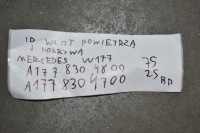 1P WLOT POWIETRZA
+ POKRYWA
MERCEDES W177
A177 830 4800
A177 830 4700
75
25
RD